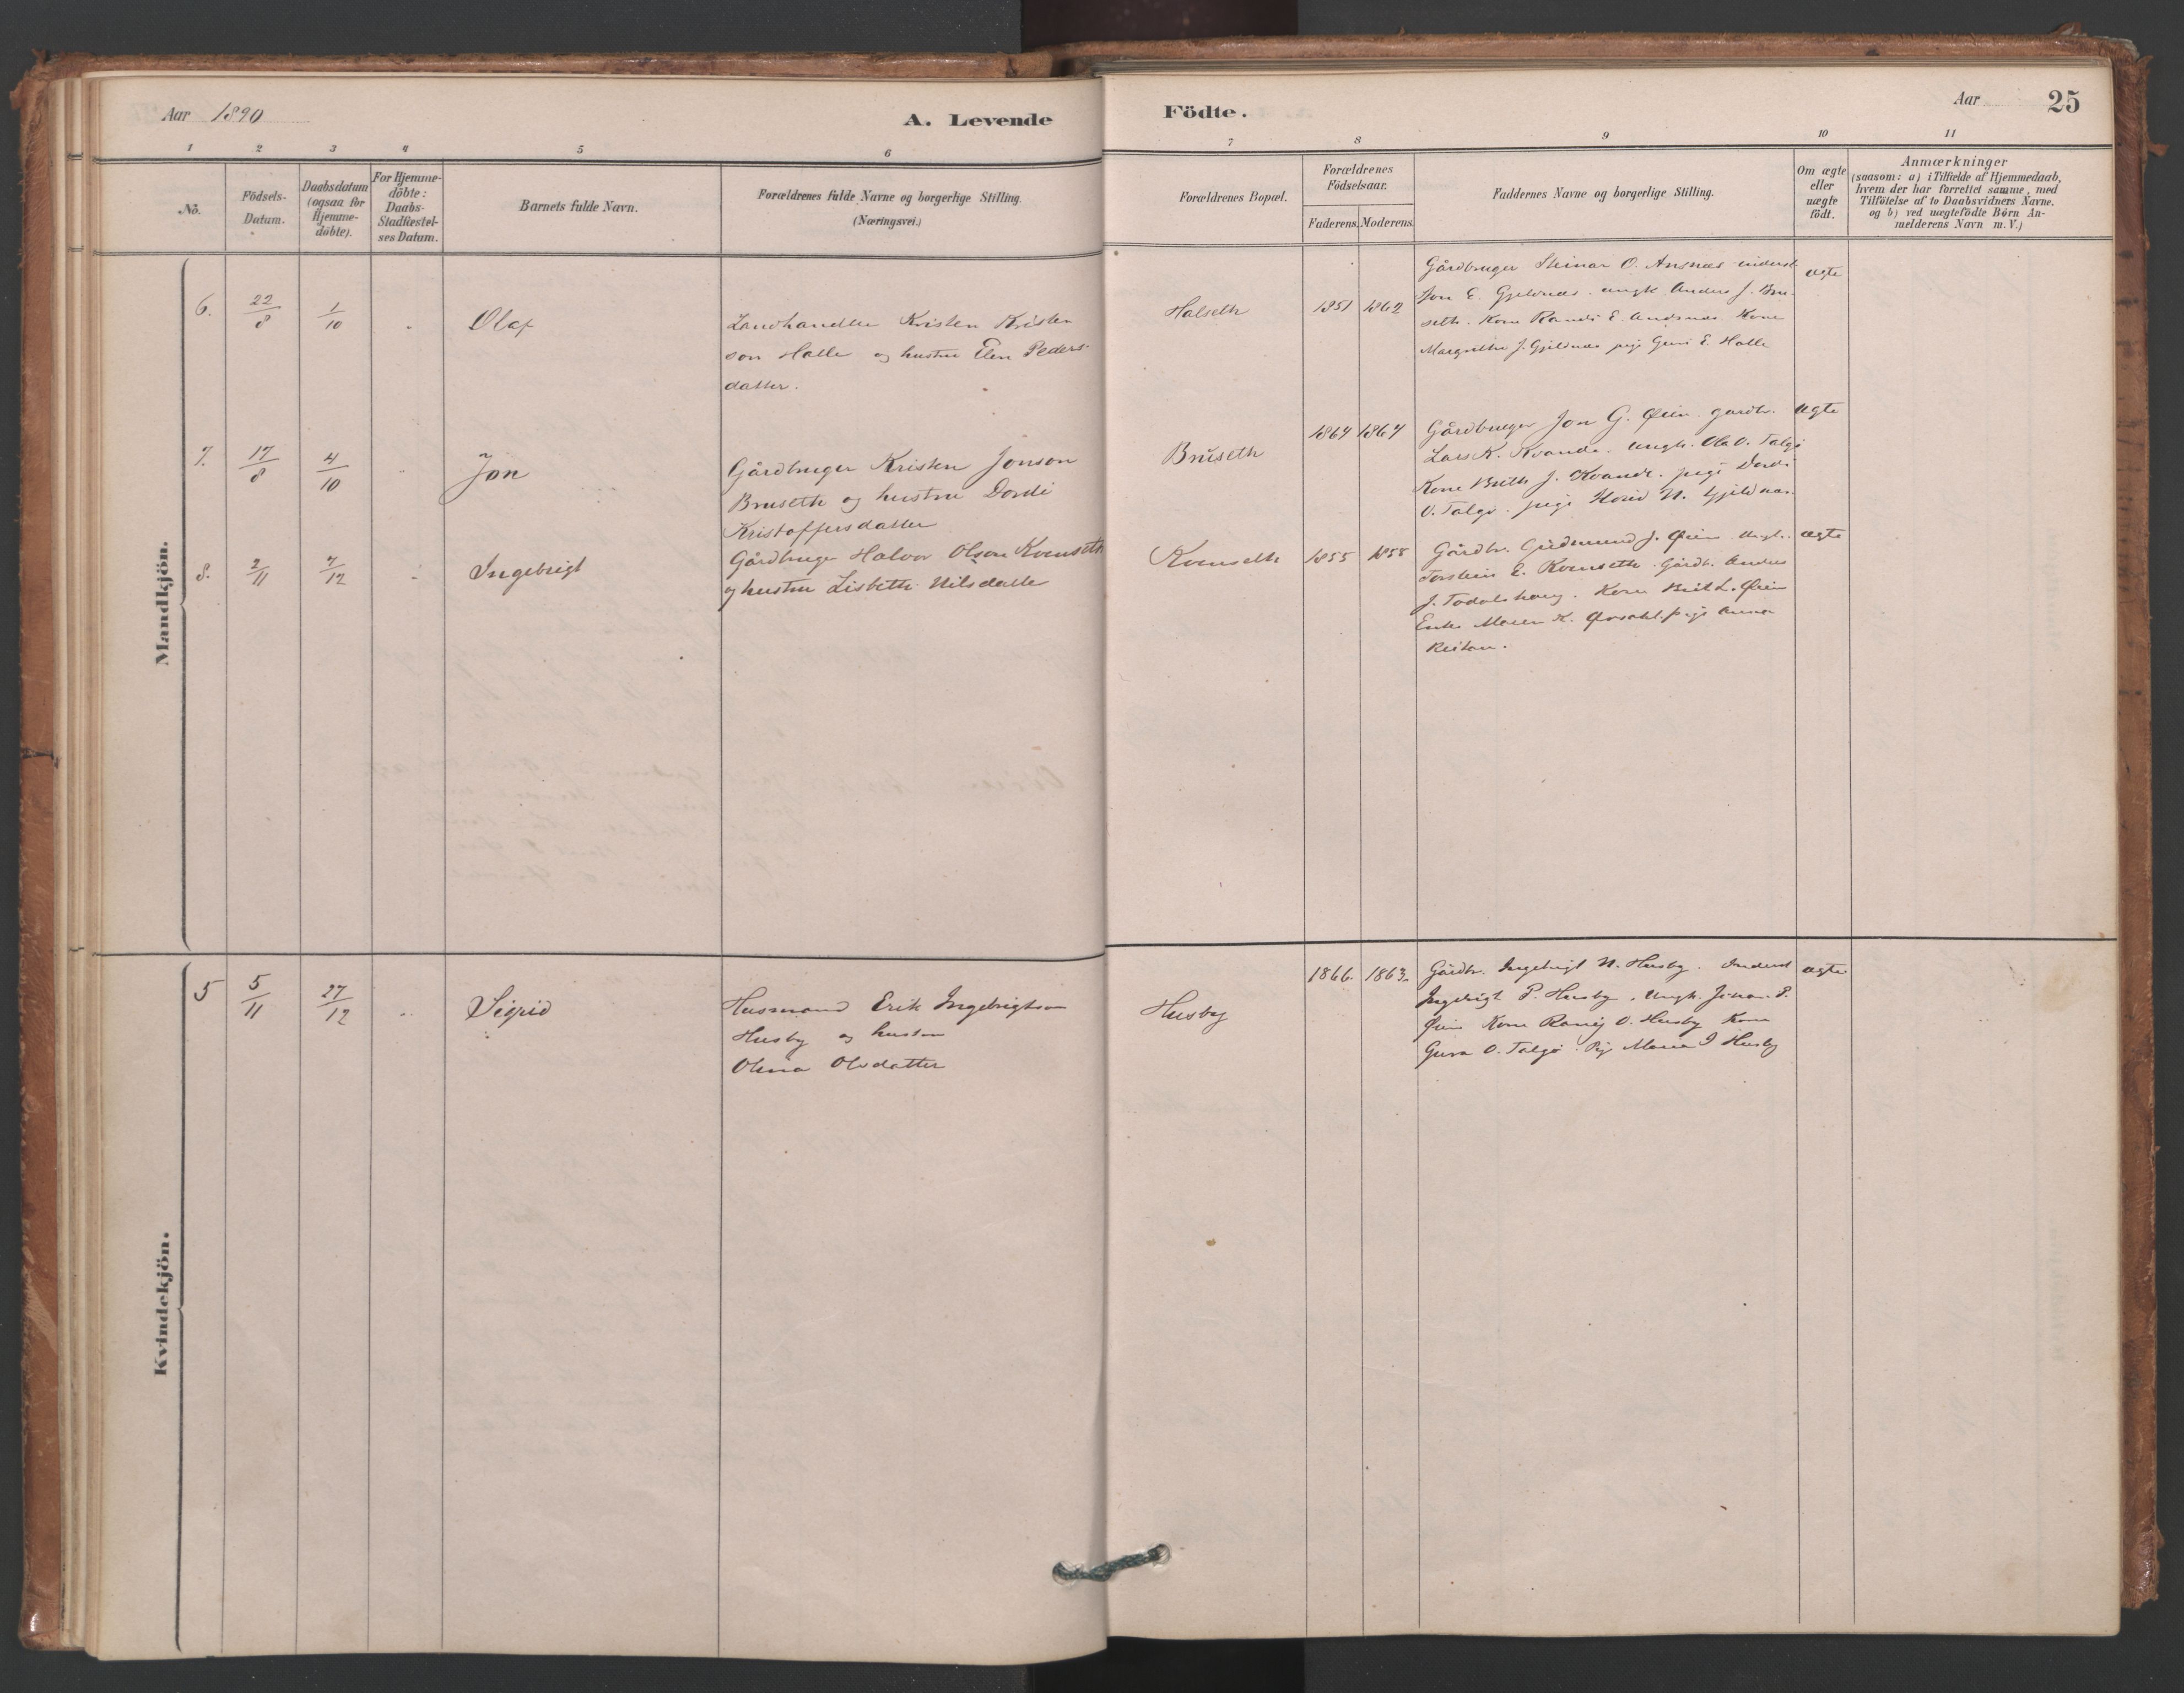 Aar 1890
A. Levende
Födte.
Aar
25
1 2 3 4 5 6 7 8 9 10 11
No.
Födsels-
Datum.
Daabsdatum
(ogsaa for
Hjemme-
döbte).
For Hjemme-
döbte:
Daabs-
Stadfæstel-
ses Datum.
Barnets fulde Navn.
Forældrenes fulde Navne og borgerlige Stilling.
(Næringsvei.)
Forældrenes Bopæl.
Forældrenes
Födselsaar.
Faderens. Moderens.
Faddernes Navne og borgerlige Stilling.
Om ægte
eller
uægte
födt.
Anmærkninger
(saasom: a) i Tilfælde af Hjemmedaab,
hvem der har forrettet samme, med
Tilföielse af to Daabsvidners Navne.
og b) ved uægtefödte Börn An-
melderens Navn m. V.)
Mandkjön.
6. 22/8 1/10 " Olaf
Landhandler Kristen Kristen
son Halle og hustru Elen Peders-
datter.
Halseth 1851 1862
Gårdbruger Steinar O. Ansnæs inderst
Jon E. Gjeldnæs. ungk Anders J. Bru-
seth. Kone Randi E. Andsnæs Kone
Margrethe J. Gjeldnæs pige Guri E. Halle
ægte
7. 17/8 4/10 " Jon
Gårdbruger Kristen Jonson
Bruseth og hustru Dordi
Kristoffersdatter
Bruseth 1864 1864
Gårdbruger Jon G. Øien gardbr.
Lars K. Kvande. ungk. Ola O. Talgø
Kone Brith J. Kvande. pige Dordi
O. Talgø. pige N. Gjeldnæs.
ægte
8. 2/11 7/12 " Ingebrigt
Gårdbruger Halvor Olson Kvenseth
og hustru Lisbeth Nilsdatter
Kvenseth 1855 1858
Gårdbr. Gudmund J. Øien Ungk.
Torstein E. Kvenseth. Gårdb. Anders
J. Todalshaug. Kone Brit L. Øien
Enke Maren K. pige Anna
ægte
Kvindekjön.
5 5/11 27/12 " Sigrid
Husmand Erik Ingebrigtson
Husby og hustru
Olina Olsdatter
Husby 1866. 1863.
Gårdbr. Ingebrigt N. Husby. Inderst
Ingebrigt P. Husby. Ungk. Johan P.
Øien Kone O. Husby Kone
Guru O. Talgø. Pig Maren I Husby
ægte